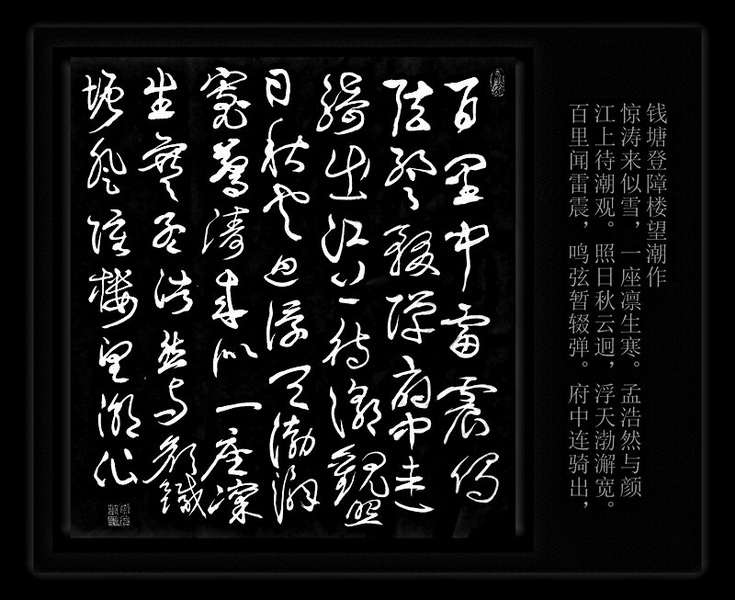 百里闻雷震鳴
弦暫輟彈府中連
騎出江上待潮觀照
日秋雲迥浮天渤澥
寬驚濤來似一座凜
生寒孟浩然與顏錢
塘登障樓望潮作
钱塘登障楼望潮作
惊涛来似雪，一座凛生寒。孟浩然与颜
江上待潮观。照日秋云迥，浮天渤澥宽。
百里闻雷震，鸣弦暂辍弹。府中连骑出，